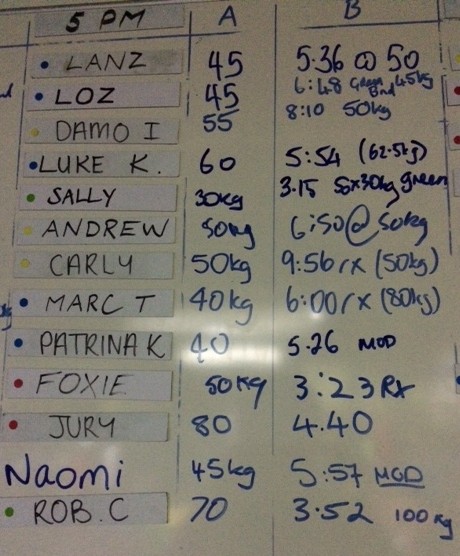 5 PM A B
LANZ 45 5:36 @ 50
LOZ 45 6:48 45kg
DAMO I 55 8:10 50kg
LUKE K. 60 5:54 (62.5kg)
SALLY 30kg 3.15 30kg green
ANDREW 50kg 6:50 @ 50kg
CARLY 50kg 9:56 rx (50kg)
MARC T 40kg 6:00 rx (80kg)
PATRINA K 40 5.26 MOD
FOXIE 50kg 3:23 Rx
JURY 80 4.40
Naomi 45kg 5:57 MOD
ROB. C 70 3:52 100 kg